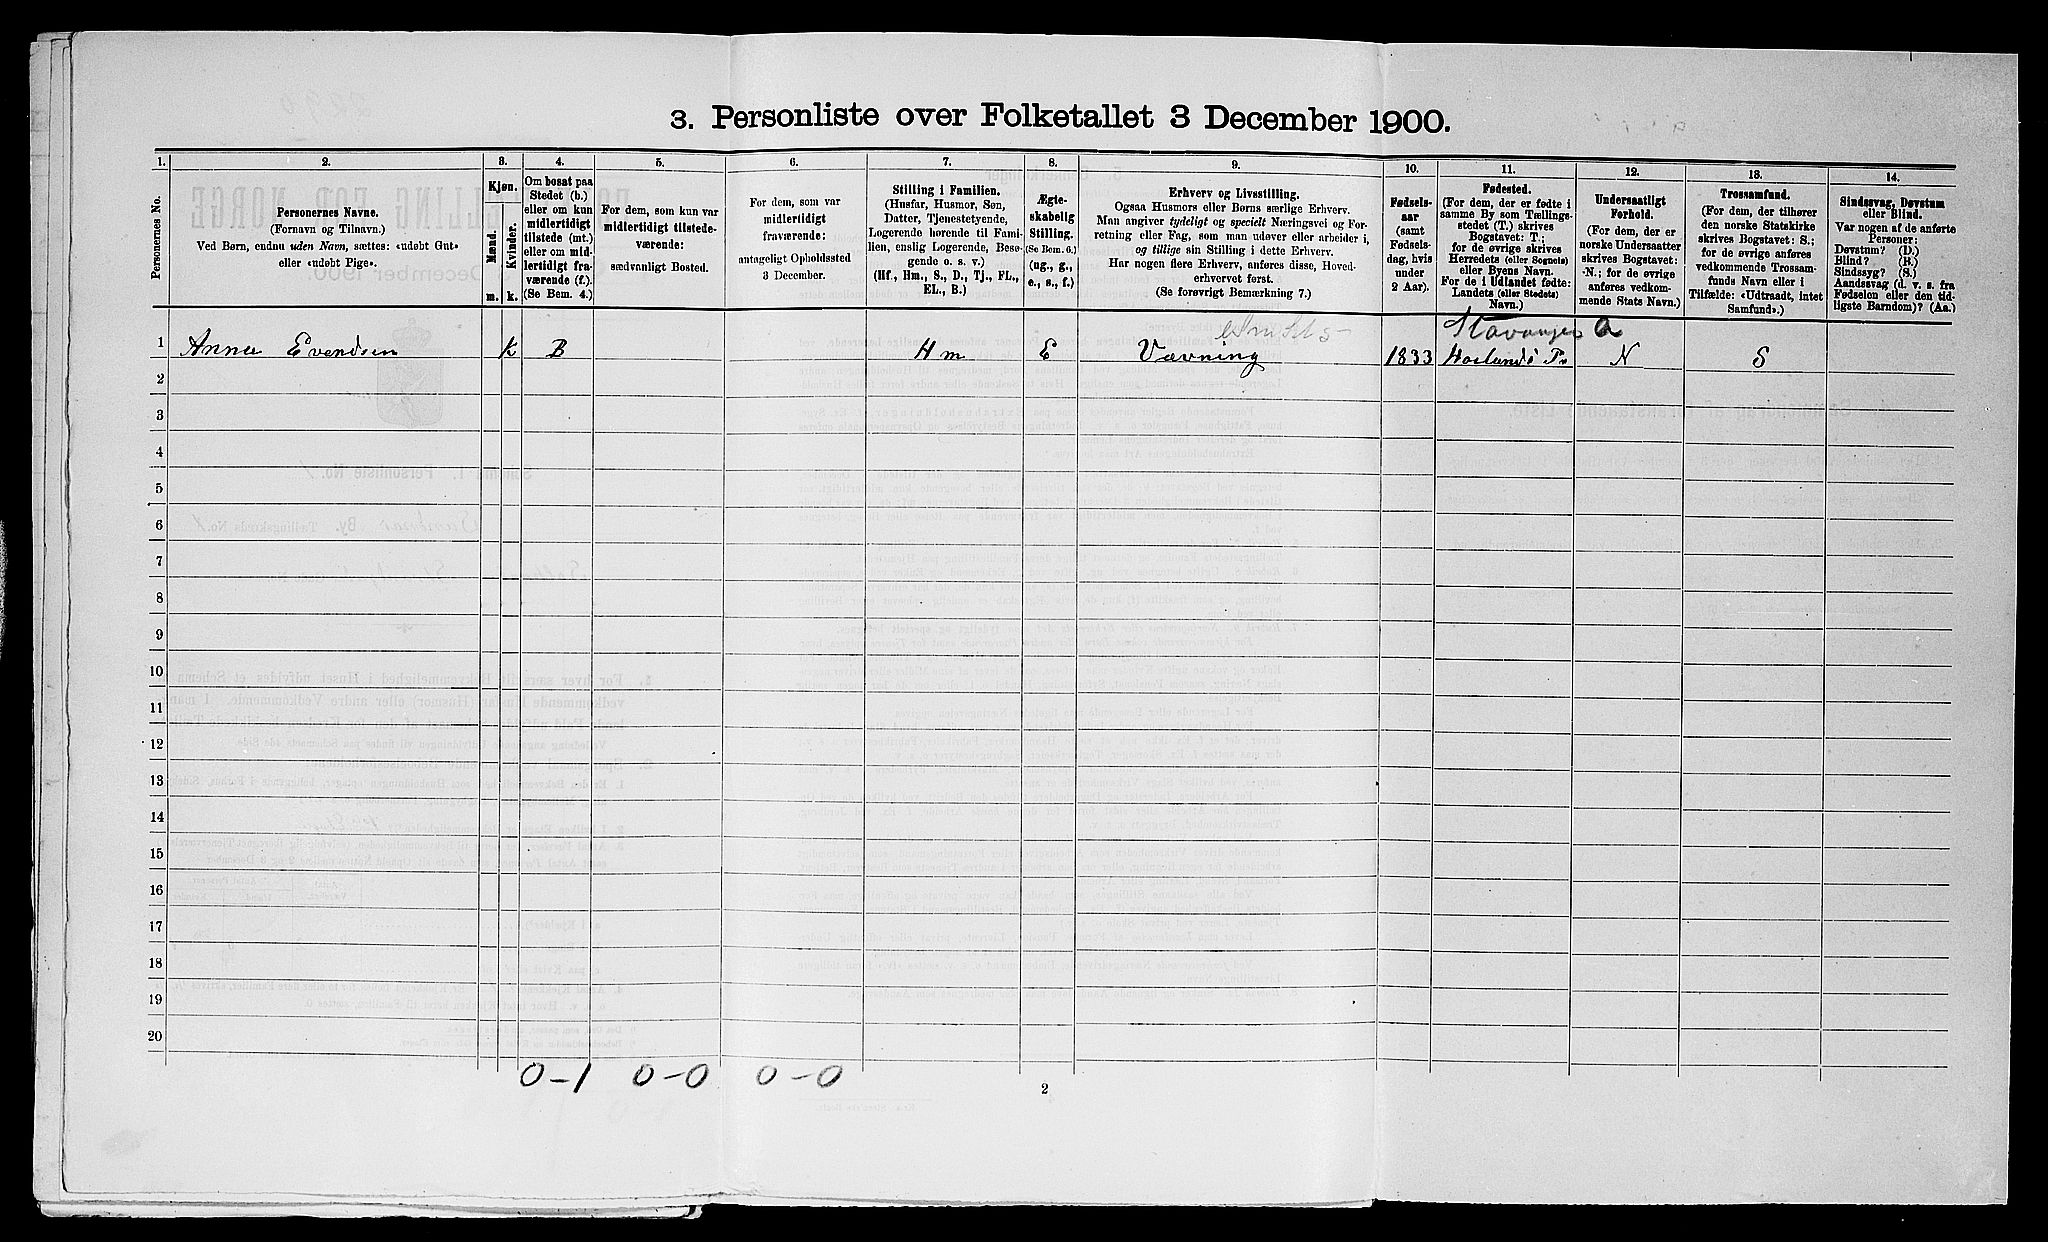 3. Personliste over Folketallet 3 December 1900.
1.
2.
3.
4.
5.
6.
7.
8.
9.
10.
11.
12.
13.
14.
Personernes No.
Personernes Navne.
(Fornavn og Tilnavn.)
Ved Børn, endnu uden Navn, sættes: «udøbt Gut»
eller «udøbt Pige».
Kjøn.
Mænd.
Kvinder.
m.
k.
Om bosat paa
Stedet (b.)
eller om kun
midlertidigt
tilstede (mt.)
eller om mid-
lertidigt fra-
værende (f.).
(Se Bem. 4.)
For dem, som kun var
midlertidigt tilstede-
værende:
sædvanligt Bosted.
For dem, som var
midlertidigt
fraværende:
antageligt Opholdssted
3 December.
Stilling i Familien.
(Husfar, Husmor, Søn,
Datter, Tjenestetyende,
Logerende hørende til Fami-
lien, enslig Logerende, Besø-
gende o. s. v.)
(Hf., Hm., S., D., Tj., FL.,
EL., B.)
Ægte-
skabelig
Stilling.
(Se Bem. 6.)
(ug., g.,
e., s., f.)
Erhverv og Livsstilling.
Ogsaa Husmors eller Børns særlige Erhverv.
Man angiver tydeligt og specielt Næringsvei og For-
retning eller Fag, som man udøver eller arbeider i,
og tillige sin Stilling i dette Erhverv.
Har nogen flere Erhverv, anføres disse, Hoved-
erhvervet først.
(Se forøvrigt Bemærkning 7.)
Fødsels-
aar
(samt
Fødsels-
dag, hvis
under
2 Aar).
Fødested.
(For dem, der er fødte i
samme By som Tællings-
stedet (T.) skrives
Bogstavet: T.;
for de øvrige skrives
Herredets (eller Sognets)
eller Byens Navn.
For de i Udlandet fødte:
Landets (eller Stedets)
Navn.)
Undersaatligt
Forhold.
(For dem, der er
norske Undersaatter
skrives Bogstavet:
N.; for de øvrige
anføres vedkom-
mende Stats Navn.)
Trossamfund.
(For dem, der tilhører
den norske Statskirke
skrives Bogstavet: S.;
for de øvrige anføres
vedkommende Trossam-
funds Navn eller i
Tilfælde: «Udtraadt, intet
Samfund».)
Sindssvag, Døvstum
eller Blind.
Var nogen af de anførte
Personer:
Døvstum? (D.)
Blind? (B.)
Sindssyg? (S.)
Aandssvag (d. v. s. fra
Fødselen eller den tid-
ligste Barndom)? (Aa.)
Stavanger a
1 Anna Evendsen K B Hm E Vævning 1833 N S
2
3
4
5
6
7
8
9
10
11
12
13
14
15
16
17
18
19
20
0-1 0-0 0-0
2